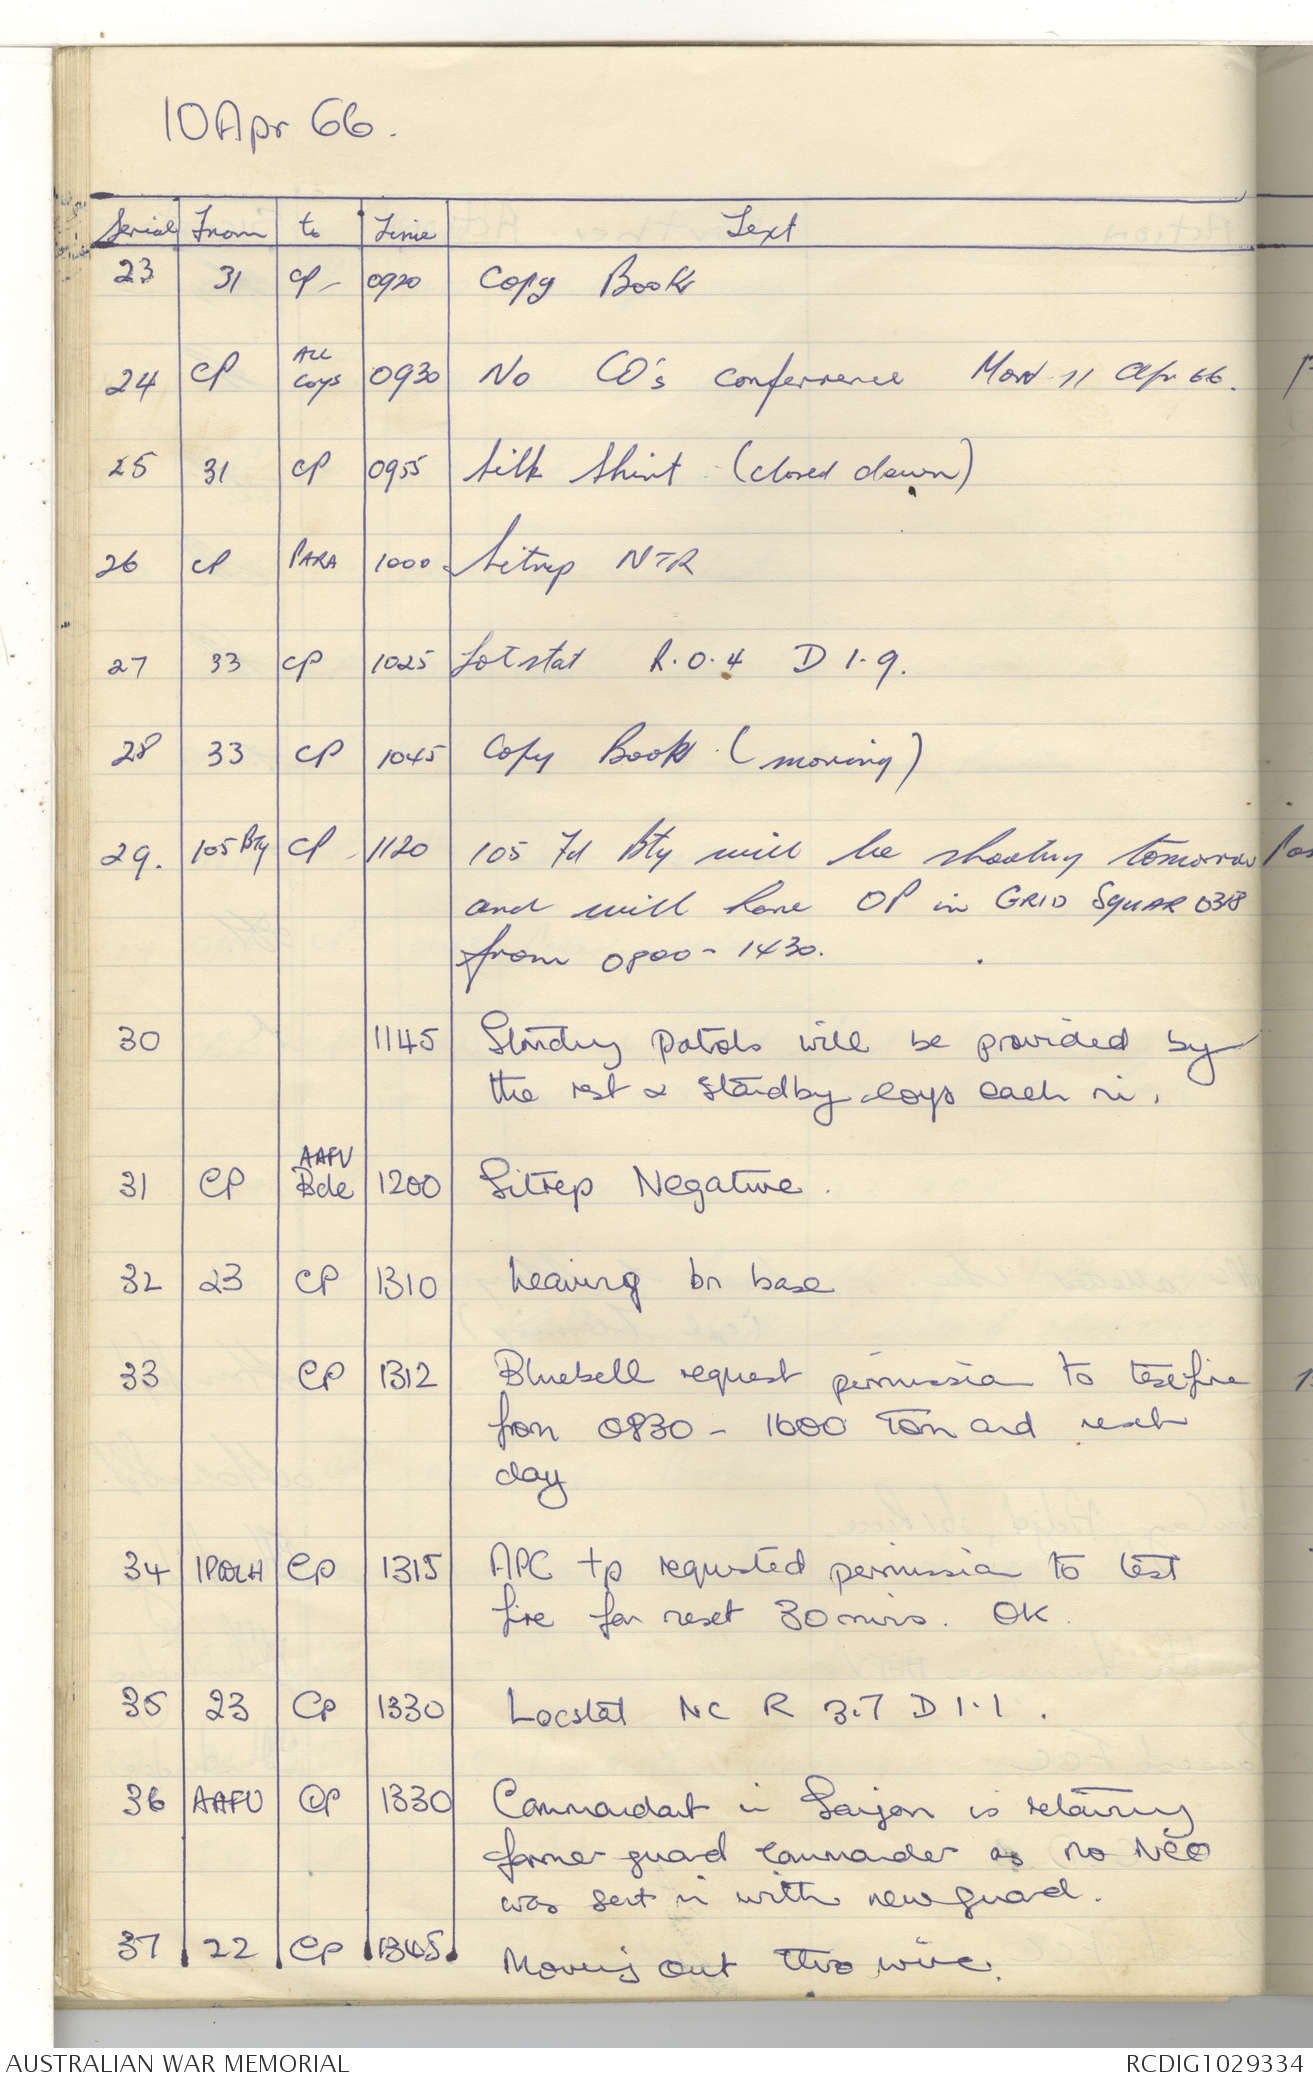 10 Apr 66.
Serial From to Time Text
23 31 CP - 0920 Copy Book
24 CP ALL Coys 0930 No CO's conferrence Mon 11 Apr 66.
25 31 CP 0955 Silk Shirt (closed down)
26 CP PARA 1000 Sitrep NTR
27 33 CP 1025 Lotstat R.0.4 D 1.9.
28 33 CP 1045 Copy Book (moving)
29. 105 Bty CP - 1120 105 Fd Bty will be shooting tomorrow
and will have OP in GRID SQUAR 0318
from 0800 - 1430.
30 1145 Standing patols will be provided by
the rest & standby coys each ni.
31 CP AAFV Bde 1200 Sitrep Negative.
32 23 CP 1310 leaving bn base
33 CP 1312 Bluebell request permission to testfire
from 0830 - 1600 Tom and next
day
34 1POWLH CP 1315 APC tp requested permission to test
fire for next 30 mins. OK.
35 23 CP 1330 Locstat NC R 3.7 D 1.1.
36 AAFV CP 1330 Commandant in Saigon is retaining
former guard commander as no NCO
was sent in with new guard.
37 22 CP 1345 Moving out thro wire.
AUSTRALIAN WAR MEMORIAL RCDIG1029334